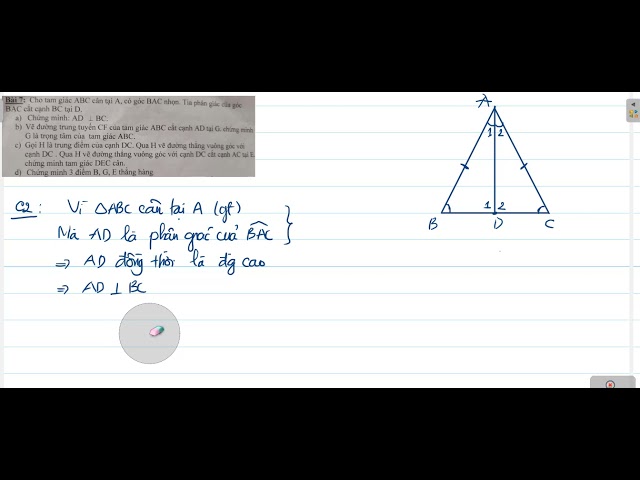 Bài 7: Cho tam giác ABC cân tại A, có góc BAC nhọn. Tia phân giác của góc
BAC cắt cạnh BC tại D.
a) Chứng minh: AD ⊥ BC.
b) Vẽ đường trung tuyến CF của tam giác ABC cắt cạnh AD tại G. chứng minh
G là trọng tâm của tam giác ABC.
c) Gọi H là trung điểm của cạnh DC. Qua H vẽ đường thẳng vuông góc với
cạnh DC . Qua H vẽ đường thẳng vuông góc với cạnh DC cắt cạnh AC tại E
chứng minh tam giác DEC cân.
d) Chứng minh 3 điểm B, G, E thẳng hàng
C2 : Vì △ABC cân tại A (gt)
Mà AD là phân giác của BAC
⇒ AD đồng thời là đg cao
⇒ AD ⊥ BC
A
1 2
1 2
B D C